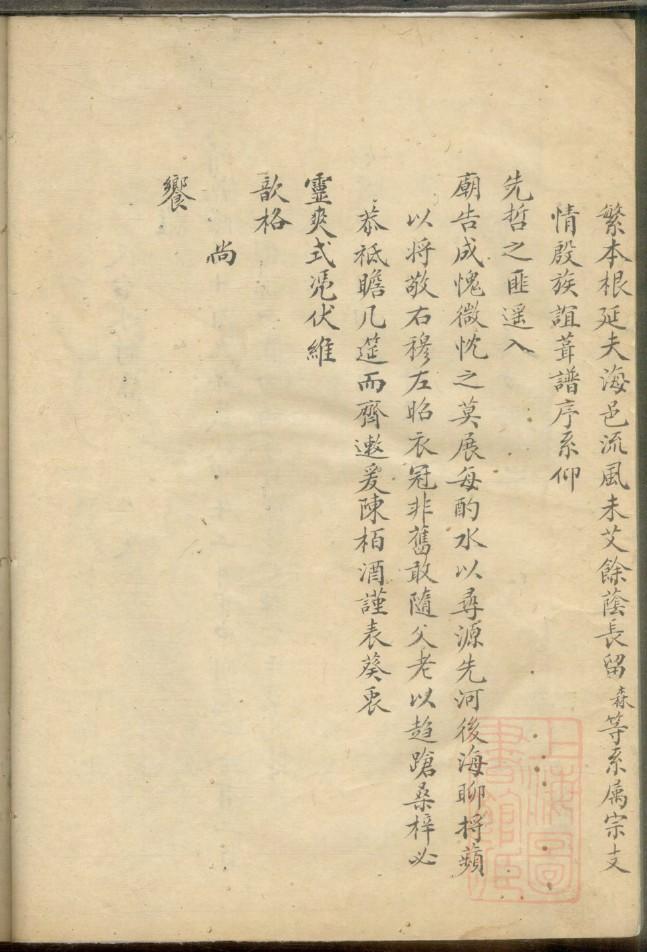 繁本根延夫海邑流風未艾餘蔭長留森等系属宗支
情殷族誼葺譜序系仰
先哲之匪遥入
廟告成愧微忱之莫展每酌水以尋源先河後海聊捋蘋
以将敬右穆左昭衣冠非舊敢隨父老以趋蹌桑梓必
恭祗瞻几筵而齊遫爰陳栢酒謹表葵衷
靈爽式凭伏維
歆格
尚
饗
上海圖
書館藏